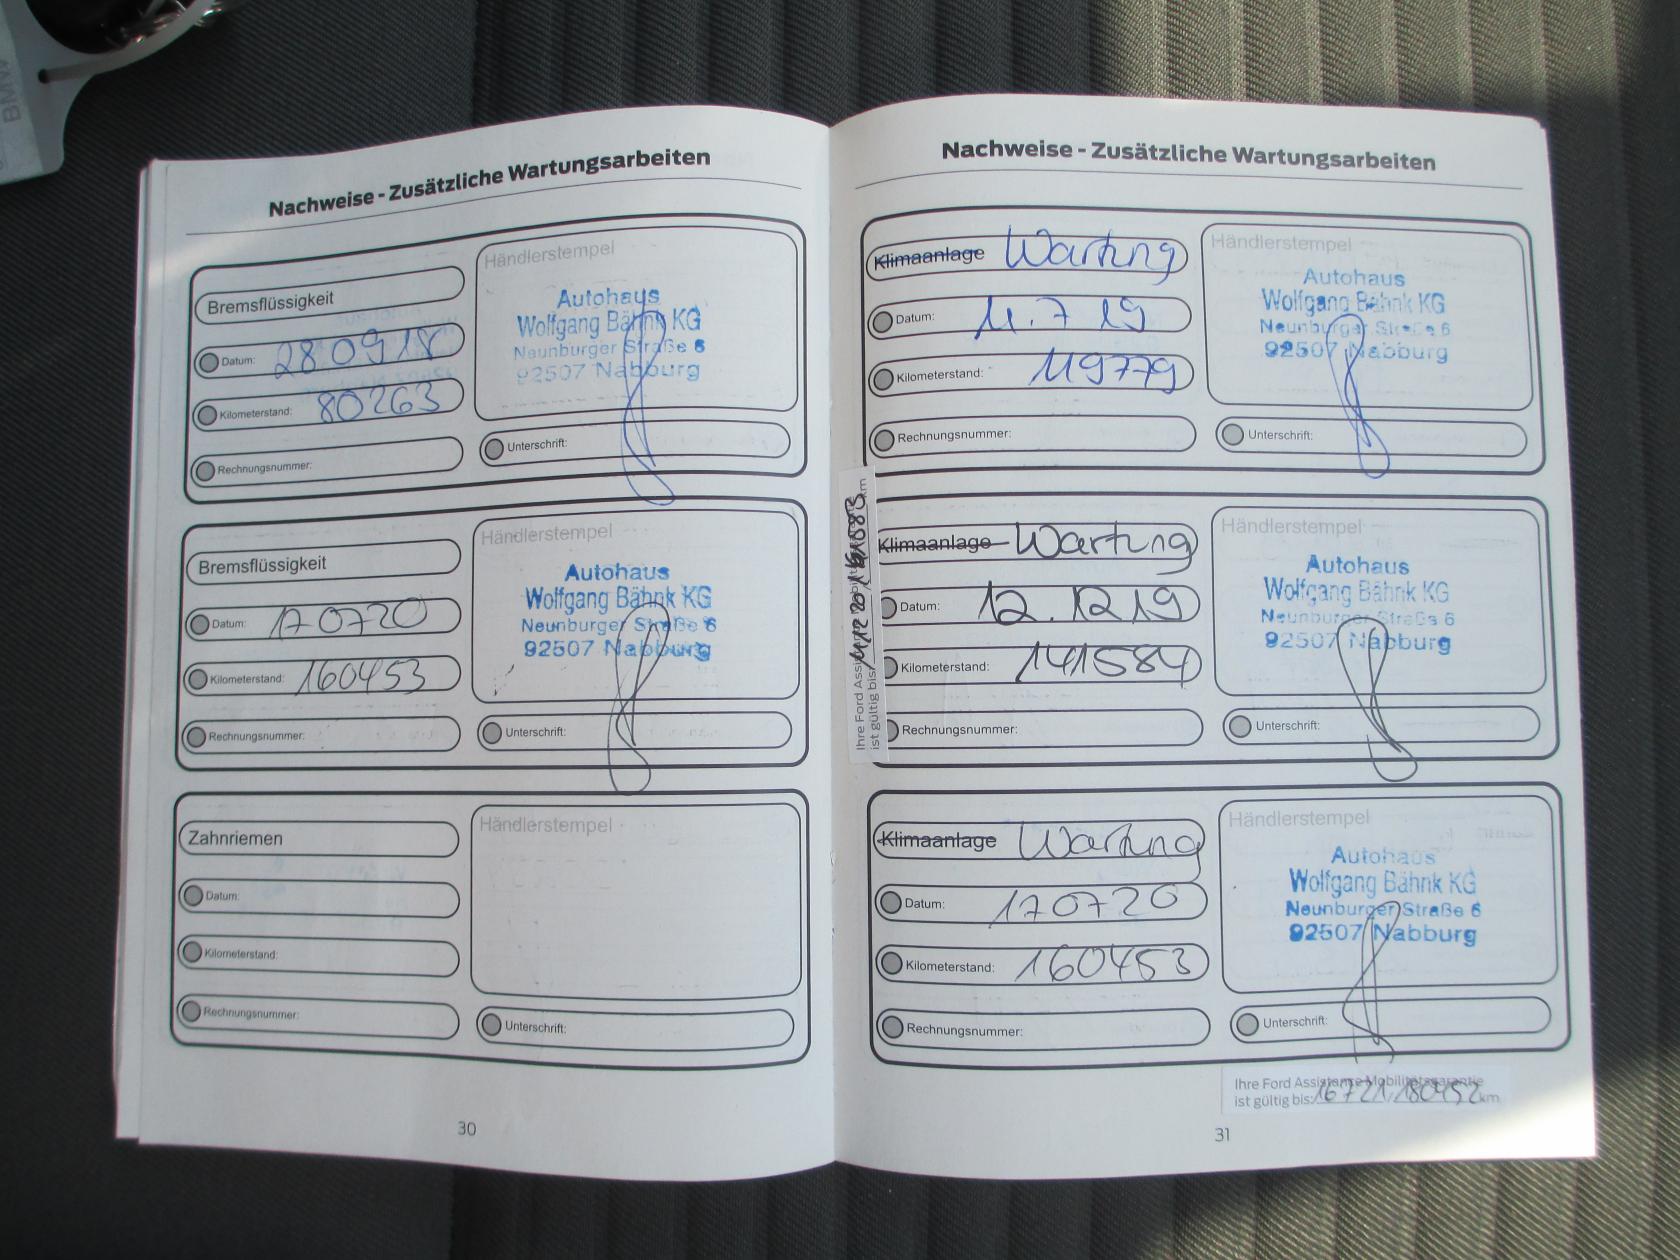 BMW
Nachweise - Zusätzliche Wartungsarbeiten
Bremsflüssigkeit
Datum: 280918
Kilometerstand: 80263
Rechnungsnummer:
Händlerstempel
Autohaus
Wolfgang Bähnk KG
Neunburger Straße 6
92507 Nabburg
Unterschrift:
Bremsflüssigkeit
Datum: 170720
Kilometerstand: 160453
Rechnungsnummer:
Händlerstempel
Autohaus
Wolfgang Bähnk KG
Neunburger Straße 6
92507 Nabburg
Unterschrift:
Zahnriemen
Datum:
Kilometerstand:
Rechnungsnummer:
Händlerstempel
Unterschrift:
30
Nachweise - Zusätzliche Wartungsarbeiten
Klimaanlage Wartung
Datum: 11.7 19
Kilometerstand: 119779
Rechnungsnummer:
Händlerstempel
Autohaus
Wolfgang Bähnk KG
Neunburger Straße 6
92507 Nabburg
Unterschrift:
Ihre Ford
ist gültig bis: km
Klimaanlage Wartung
Datum: 12.12 19
Kilometerstand: 141584
Rechnungsnummer:
Händlerstempel
Autohaus
Wolfgang Bähnk KG
Neunburger Straße 6
92507 Nabburg
Unterschrift:
Klimaanlage Wartung
Datum: 170720
Kilometerstand: 160453
Rechnungsnummer:
Händlerstempel
Autohaus
Wolfgang Bähnk KG
Neunburger Straße 6
92507 Nabburg
Unterschrift:
Ihre Ford Assistance Mobilitätsgarantie
ist gültig bis: 16721/180452 km
31